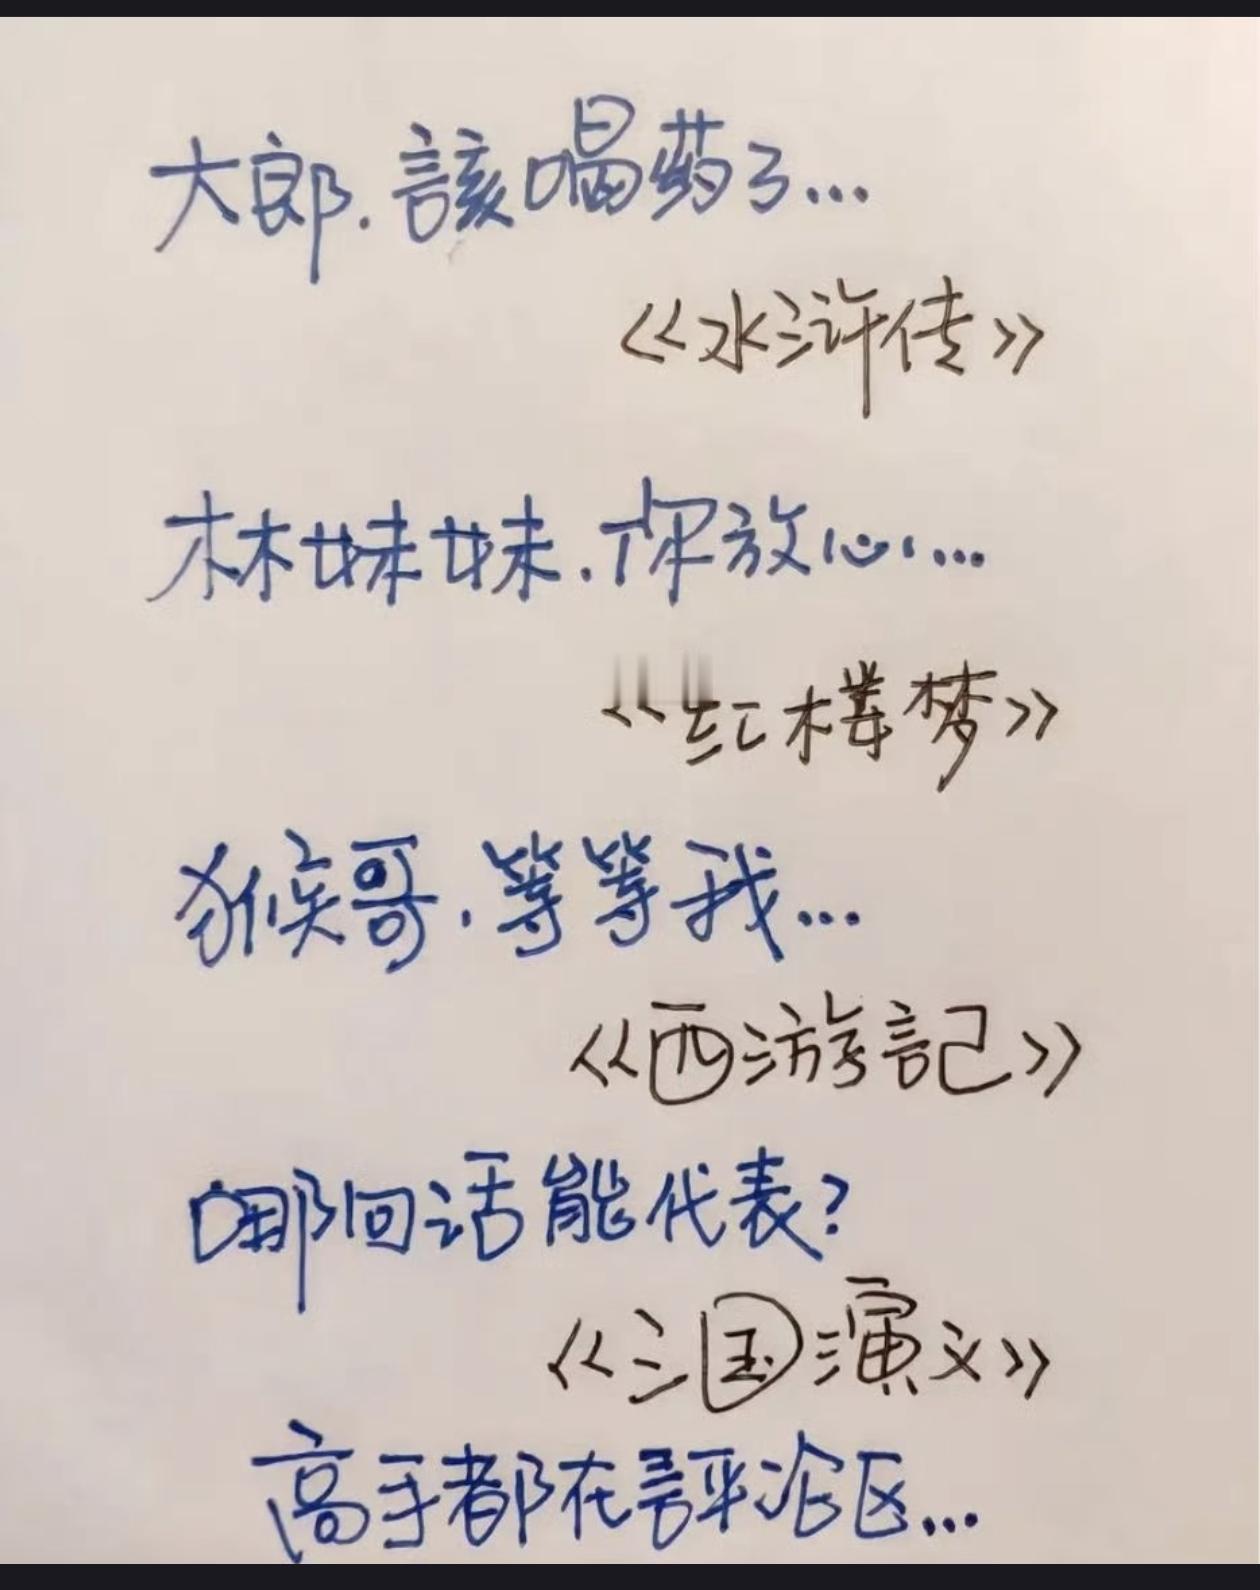 大郎.該喝药了...
《水浒传》
林妹妹.你放心...
《红楼梦》
猴哥.等等我...
《西游記》
哪句话能代表?
《三国演义》
高手都在評论区...